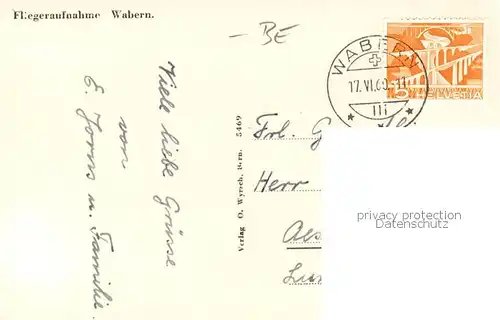 Fliegeraufnahme Wabern.
- BE
WABERN
17. VI. 60. - 11
III
5
HELVETIA
Viele liebe Grüsse
von
E. Jorns u. Familie.
Verlag O. Wyrsch, Bern. 5469
Frl. G
Herr
Aes
Luz
privacy protection
Datenschutz